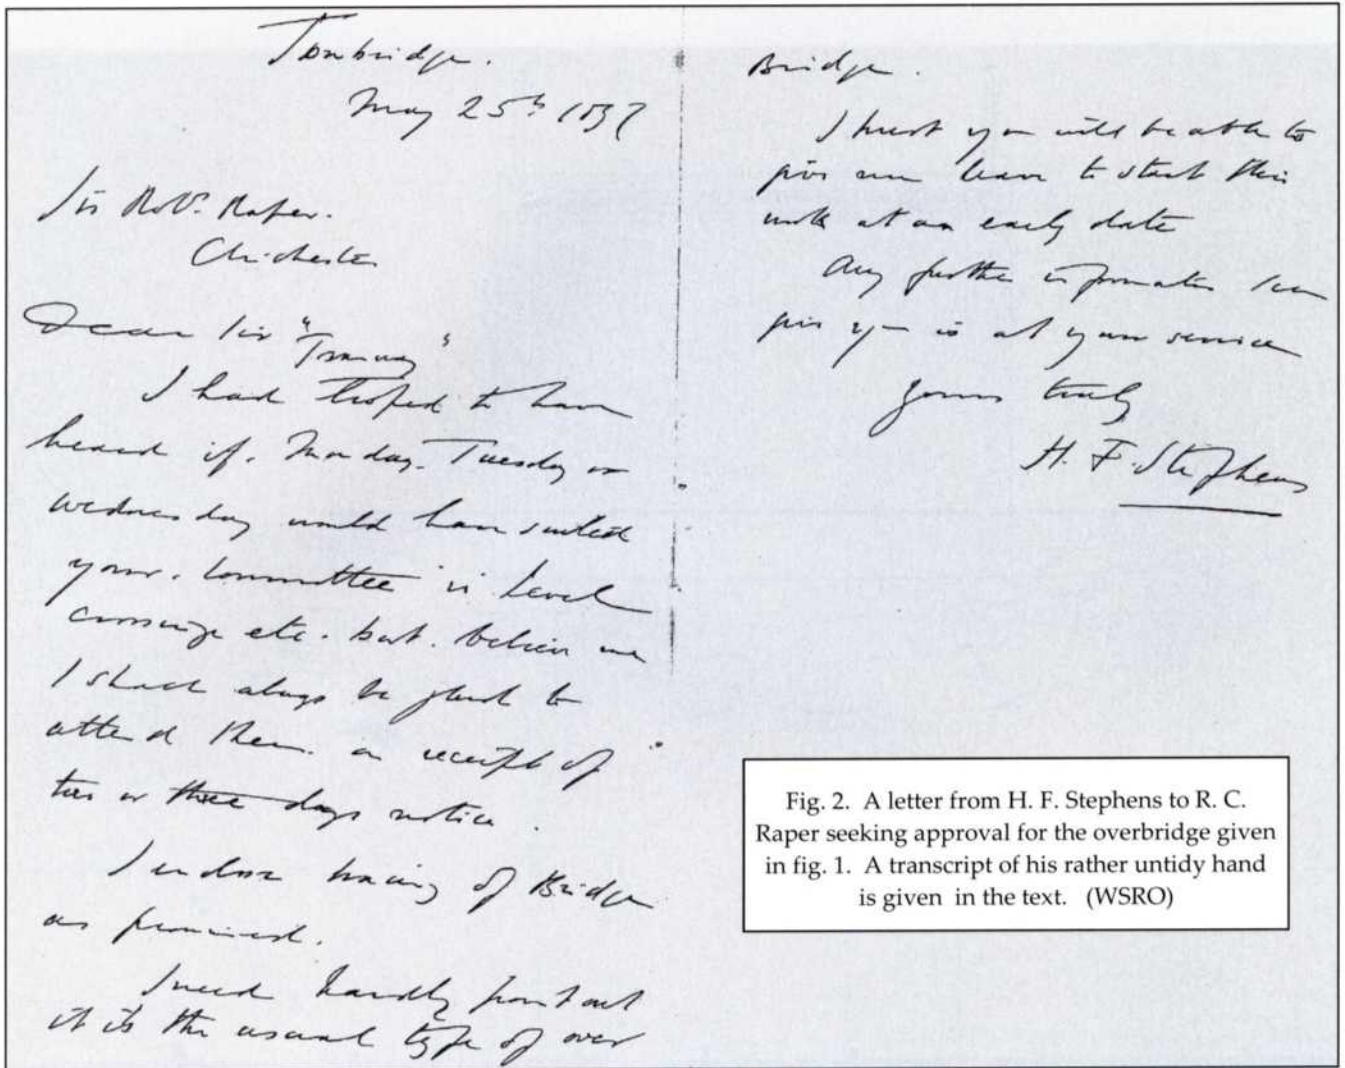 Tonbridge.
May 25th 1897
Sir R. Raper.
Chichester
Dear Sir "Tramway"
I had hoped to have
heard if. Monday. Tuesday or
wednesday would have suited
your. Committee is Level
crossings etc. but. believe me
I shall always be glad to
attend them. on receipt of
two or three days notice.
I enclose tracing of Bridge
as promised.
I need hardly point out
it is the usual type of over
Bridge.
I trust you will be able to
give me leave to start this
work at an early date
Any further information I can
give you is at your service
Yours truly
H. F. Stephens
Fig. 2. A letter from H. F. Stephens to R. C.
Raper seeking approval for the overbridge given
in fig. 1. A transcript of his rather untidy hand
is given in the text. (WSRO)